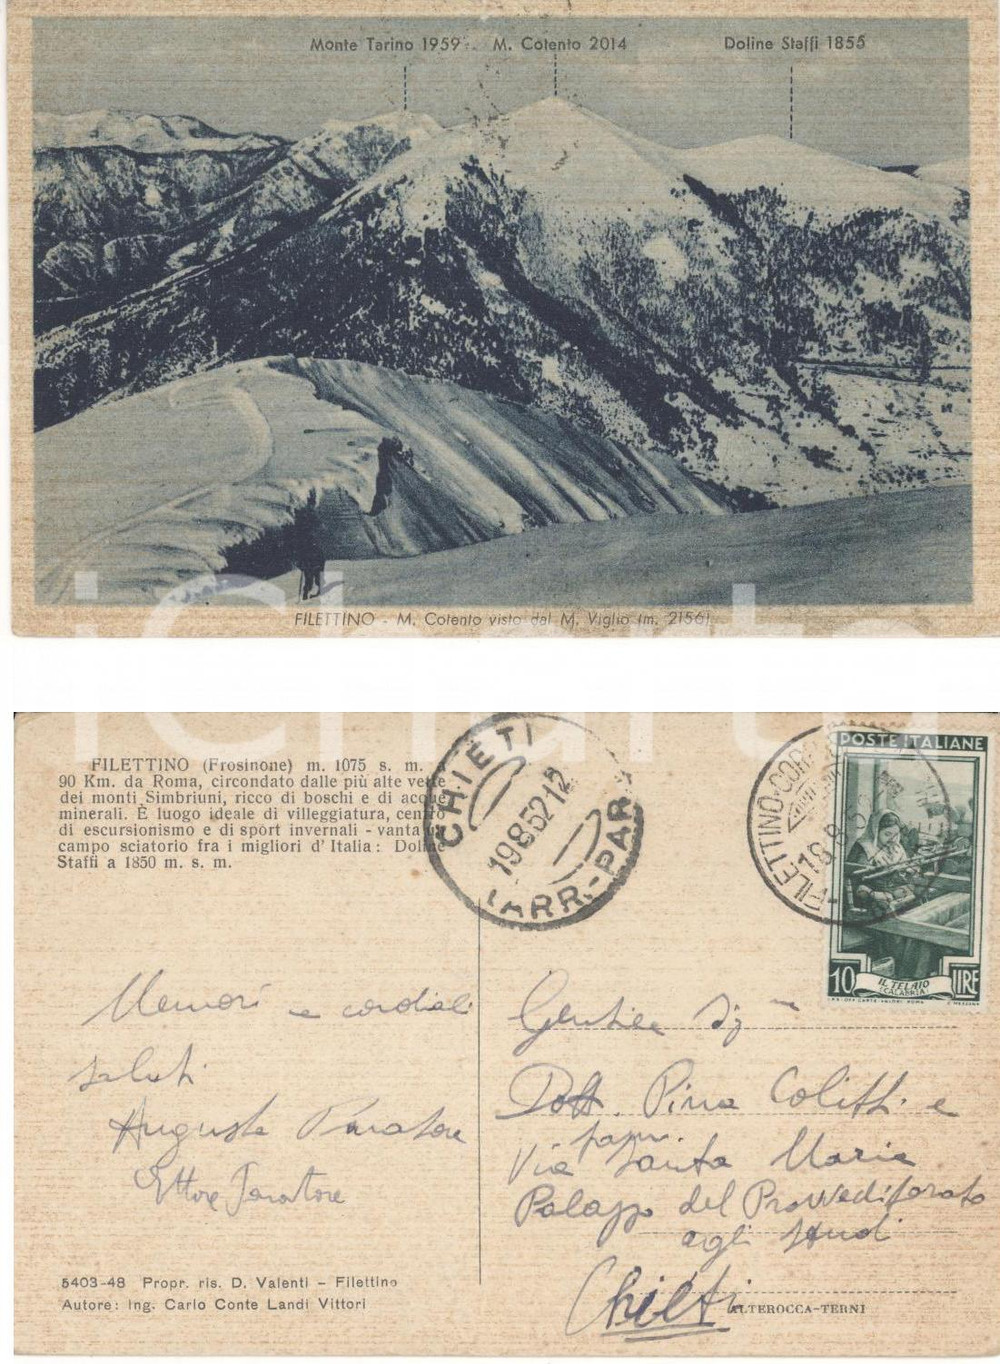 Monte Tarino 1959 M. Cotento 2014 Doline Staffi 1855
FILETTINO - M. Cotento visto dal M. Viglio (m. 2156)
iCharta
FILETTINO (Frosinone) m. 1075 s. m.
90 Km. da Roma, circondato dalle più alte vette
dei monti Simbriuni, ricco di boschi e di acque
minerali. È luogo ideale di villeggiatura, centro
di escursionismo e di sport invernali - vanta
campo sciatorio fra i migliori d'Italia: Doline
Staffi a 1850 m. s. m.
CHIETI
19 8 52 12
(ARR.-PAR
FILETTINO
POSTE ITALIANE
10 LIRE
IL TELAIO
(CALABRIA)
Memori e cordiali
saluti
Augusto
Ettore
Gentile Sig
Dott. Pina Colitti e
fam.
Via Santa Maria
Palazzo del Provveditorato
agli Studi
Chieti
5403-48 Propr. ris. D. Valenti – Filettino
Autore: Ing. Carlo Conte Landi Vittori
ALTEROCCA-TERNI